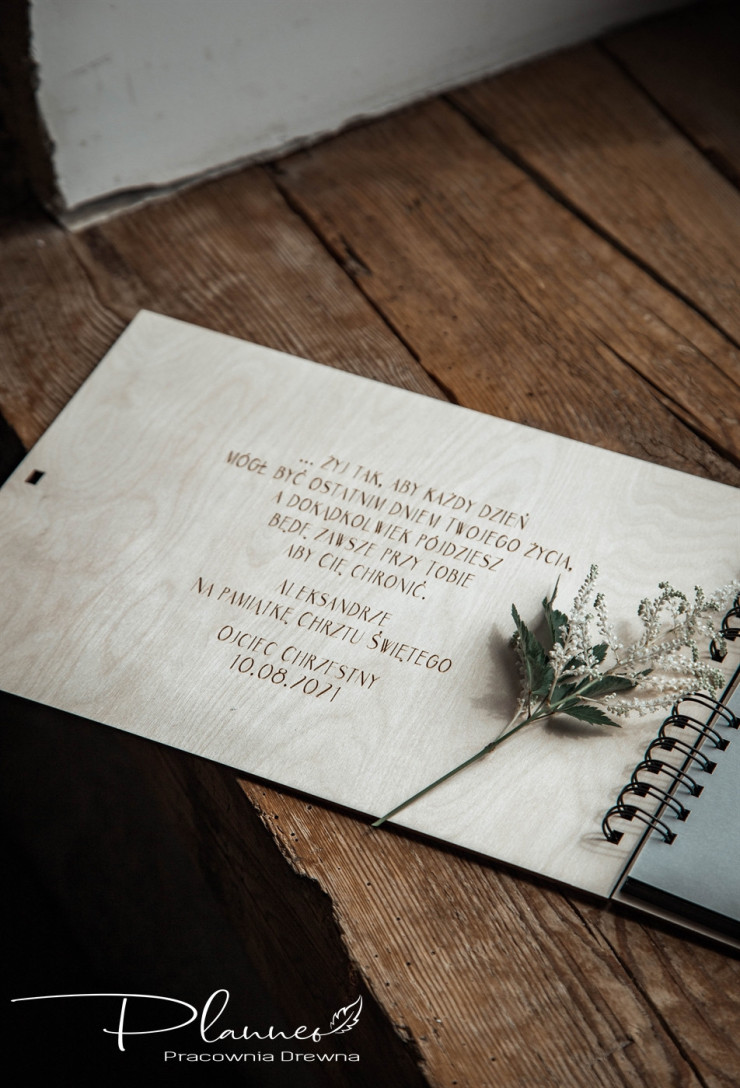 ... ŻYJ TAK, ABY KAŻDY DZIEŃ
MÓGŁ BYĆ OSTATNIM DNIEM TWOJEGO ŻYCIA,
A DOKĄDKOLWIEK PÓJDZIESZ
BĘDĘ ZAWSZE PRZY TOBIE
ABY CIĘ CHRONIĆ.
ALEKSANDRZE
NA PAMIĄTKĘ CHRZTU ŚWIĘTEGO
OJCIEC CHRZESTNY
10.08.2021
Planneo
Pracownia Drewna